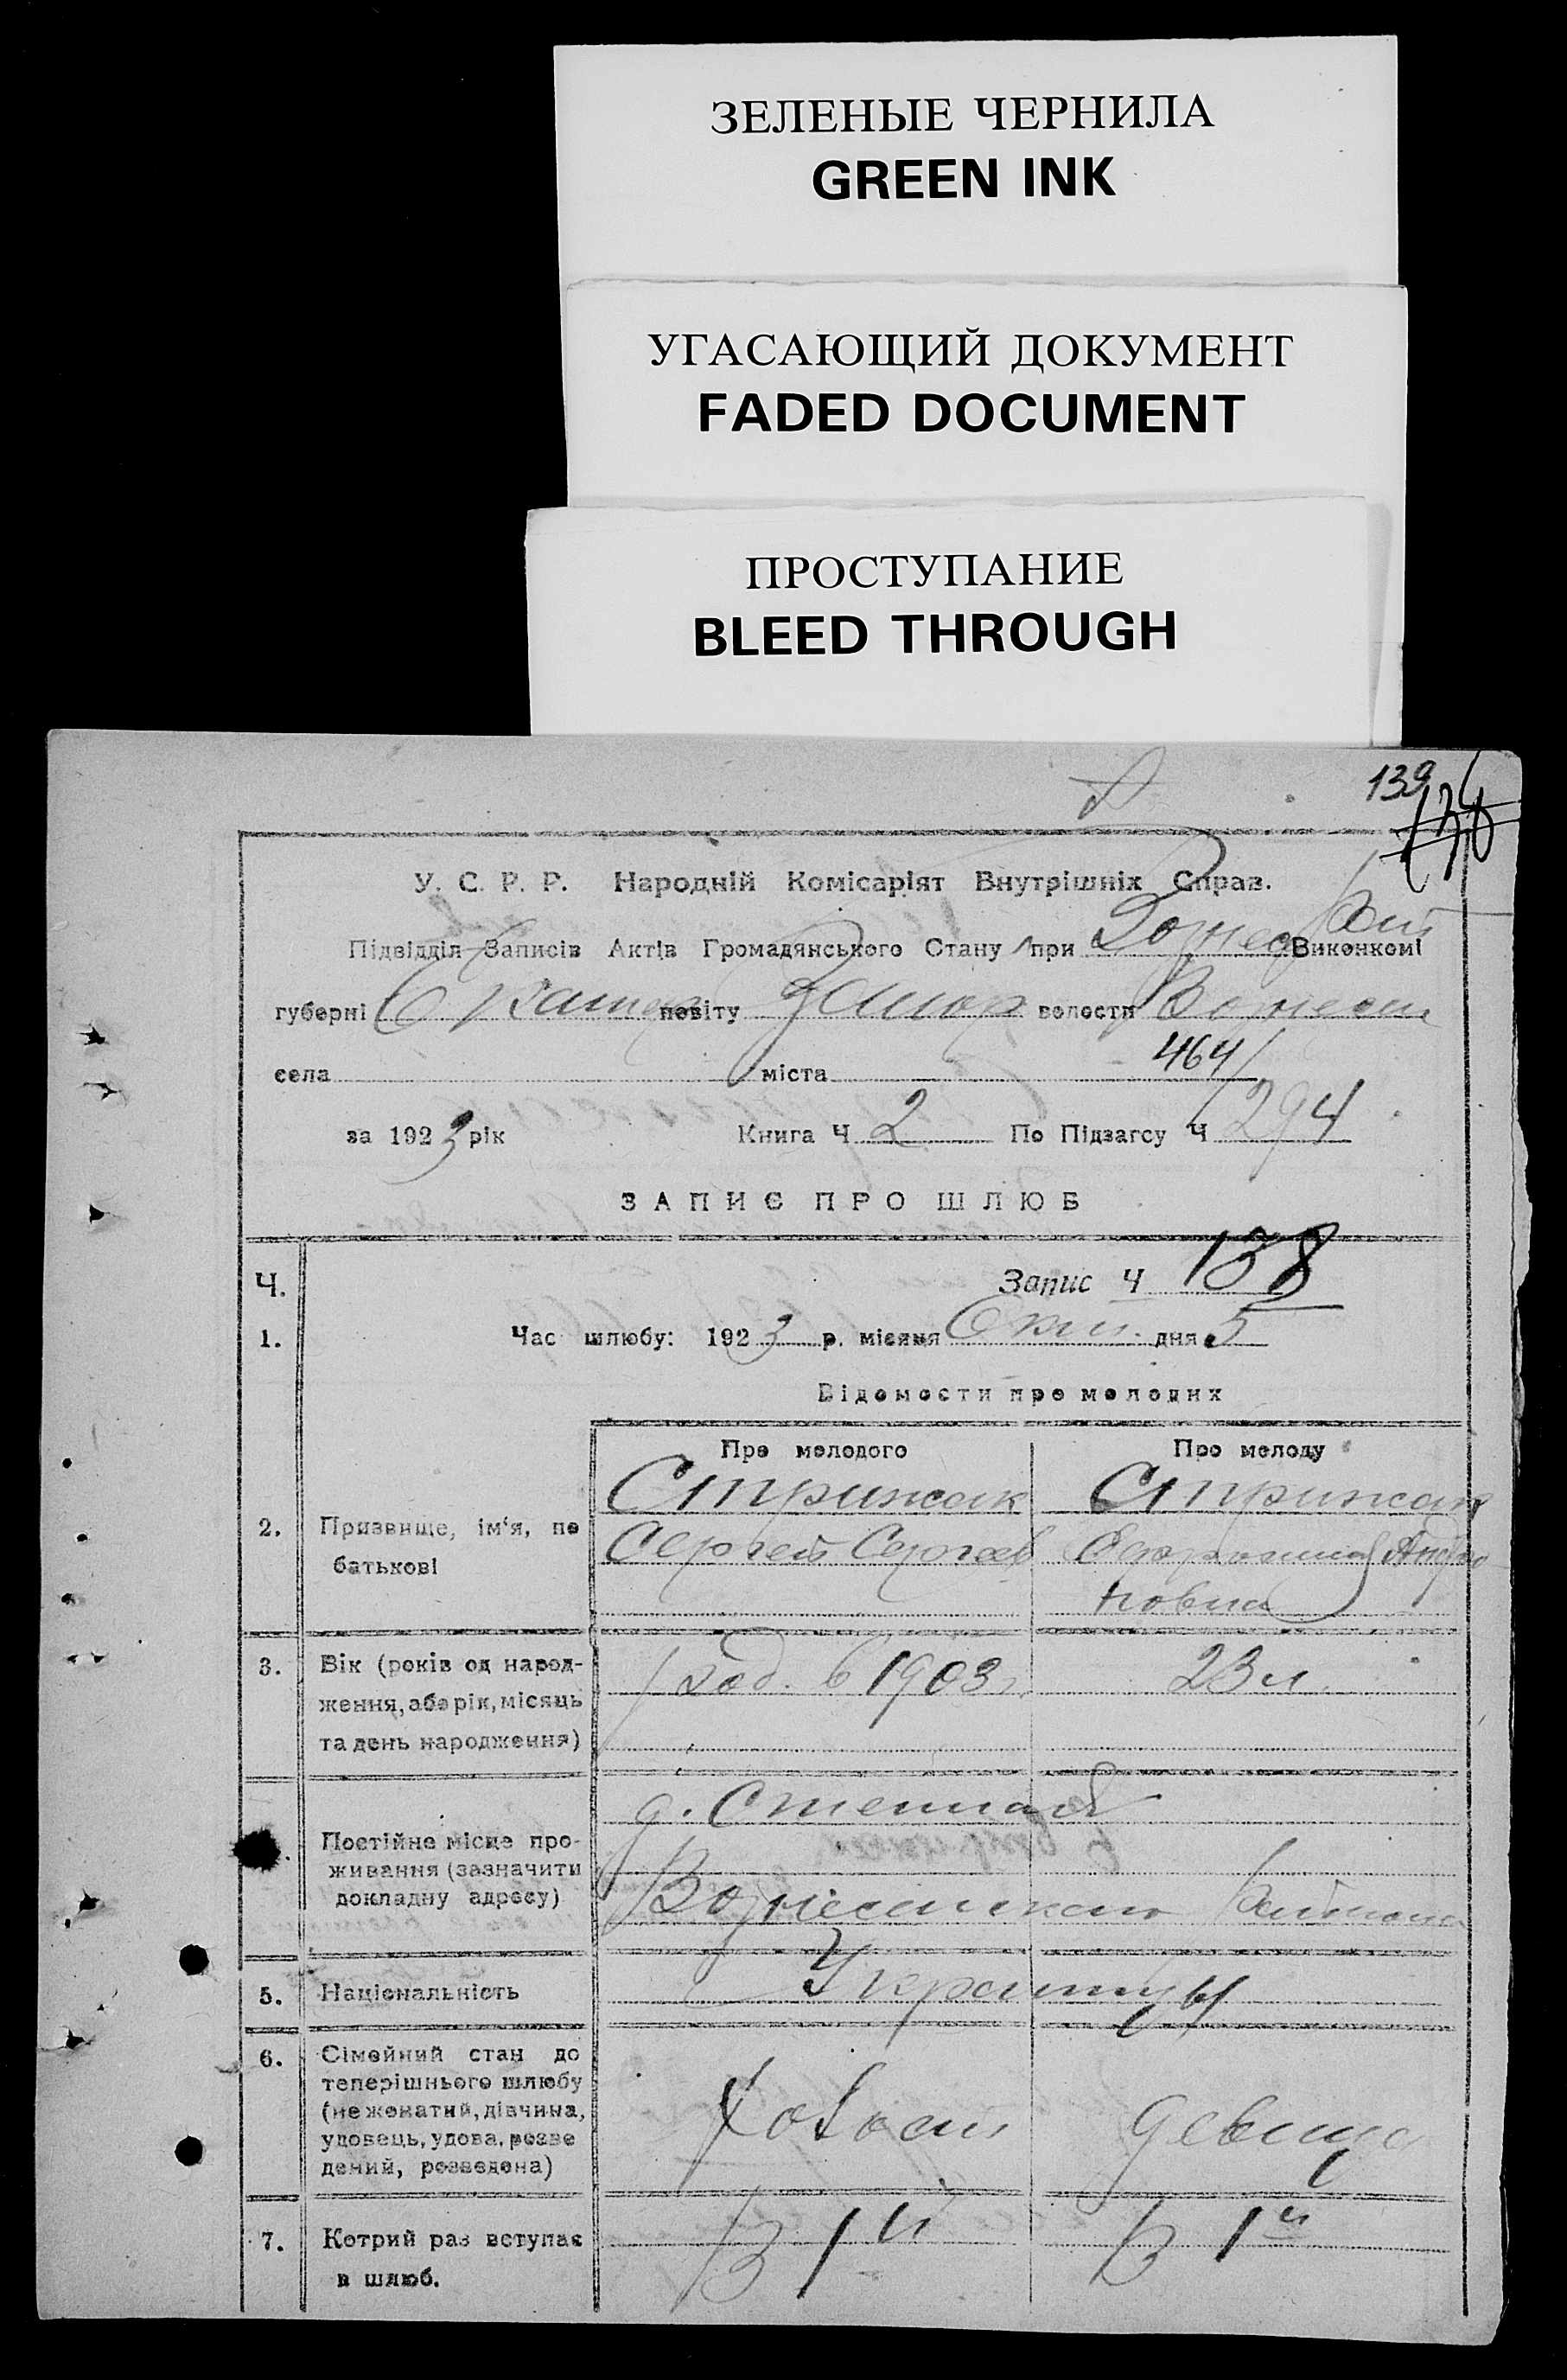 ЗЕЛЕНЫЕ ЧЕРНИЛА
GREEN INK
УГАСАЮЩИЙ ДОКУМЕНТ
FADED DOCUMENT
ПРОСТУПАНИЕ
BLEED THROUGH
139
136
У. С. Р. Р. Народній Комісаріят Внутрішніх Справ.
Підвідділ Записів Актів Громадянського Стану при Вознес Рай Виконкомі
губерні Екатер повіту Запор волости Вознесен
села міста 464
за 1923 рік Книга Ч 2 По Підзагсу Ч 294
ЗАПИС ПРО ШЛЮБ
Ч. Запис Ч 138
1. Час шлюбу: 1923 р. місяця Окт. дня 5
Відомости про молодих
Про молодого Про молоду
Стрижак Стрижак
2. Призвище, ім'я, по Сергей Сергеев Ефросиния Андро
батькові новна
3. Вік (років од народ- род. в 1903 г. 23 л.
ження, або рік, місяць
та день народження)
д. Степная
Постійне місце про-
живання (зазначити
докладну адресу) Вознесенского Района
5. Національність Украинцы
6. Сімейний стан до
теперішнього шлюбу
(не жонатий, дівчина, Холост девица
удовець, удова, розве
дений, розведена)
7. Котрий раз вступає В 1й В 1й
в шлюб.